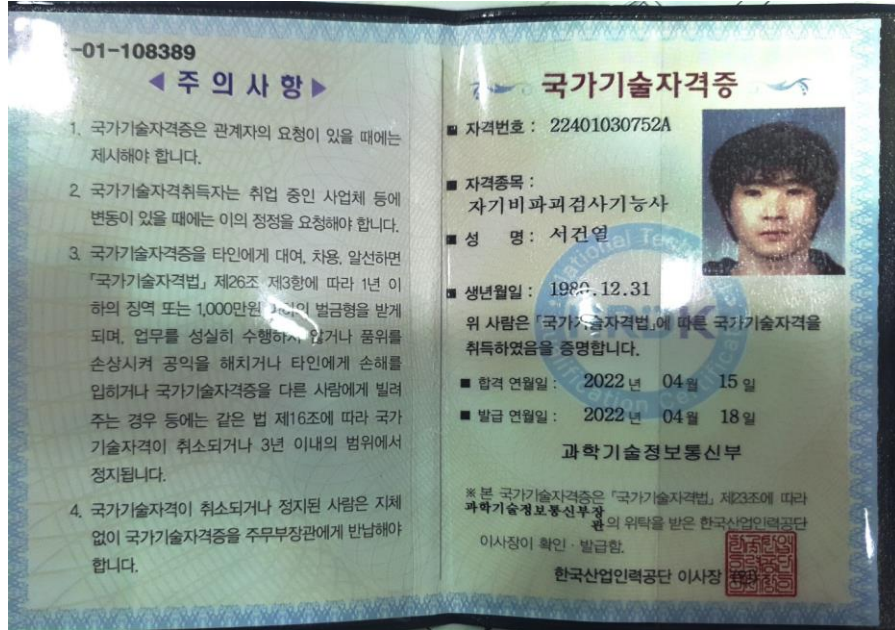 -01-108389
◀ 주 의 사 항 ▶
1. 국가기술자격증은 관계자의 요청이 있을 때에는
제시해야 합니다.
2. 국가기술자격취득자는 취업 중인 사업체 등에
변동이 있을 때에는 이의 정정을 요청해야 합니다.
3. 국가기술자격증을 타인에게 대여, 차용, 알선하면
「국가기술자격법」 제26조 제3항에 따라 1년 이
하의 징역 또는 1,000만원 벌금형을 받게
되며, 업무를 성실히 수행하지 않거나 품위를
손상시켜 공익을 해치거나 타인에게 손해를
입히거나 국가기술자격증을 다른 사람에게 빌려
주는 경우 등에는 같은 법 제16조에 따라 국가
기술자격이 취소되거나 3년 이내의 범위에서
정지됩니다.
4. 국가기술자격이 취소되거나 정지된 사람은 지체
없이 국가기술자격증을 주무부장관에게 반납해야
합니다.
국가기술자격증
■ 자격번호 : 22401030752A
■ 자격종목 :
자기비파괴검사기능사
■ 성 명 : 서건열
■ 생년월일 : 1980.12.31
위 사람은 「국가기술자격법」에 따른 국가기술자격을
취득하였음을 증명합니다.
■ 합격 연월일 : 2022 년 04 월 15 일
■ 발급 연월일 : 2022 년 04 월 18 일
과학기술정보통신부
※ 본 국가기술자격증은 「국가기술자격법」 제23조에 따라
과학기술정보통신부장
관의 위탁을 받은 한국산업인력공단
이사장이 확인 · 발급함.
한국산업인력공단 이사장